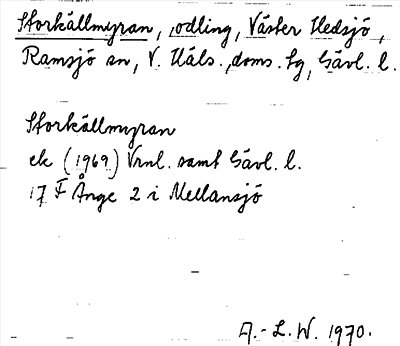 Storkällmyran, odling, Väster Hedsjö,
Ramsjö sn, V. Häls. doms. tg, Gävl. l.
Storkällmyran
ek (1969) Vrnl. samt Gävl. l.
17 F Ånge 2 i Mellansjö
A.-L. W. 1970.